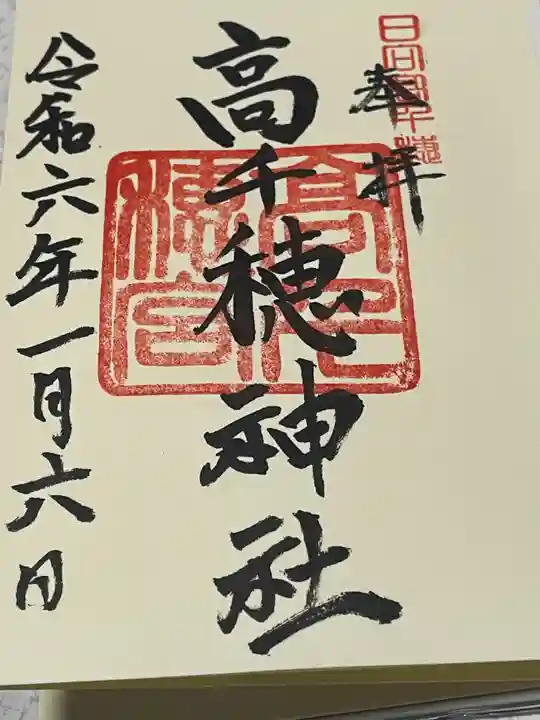 奉拝
日向高千穂
高千穂神社
高千穂宮
令和六年一月六日